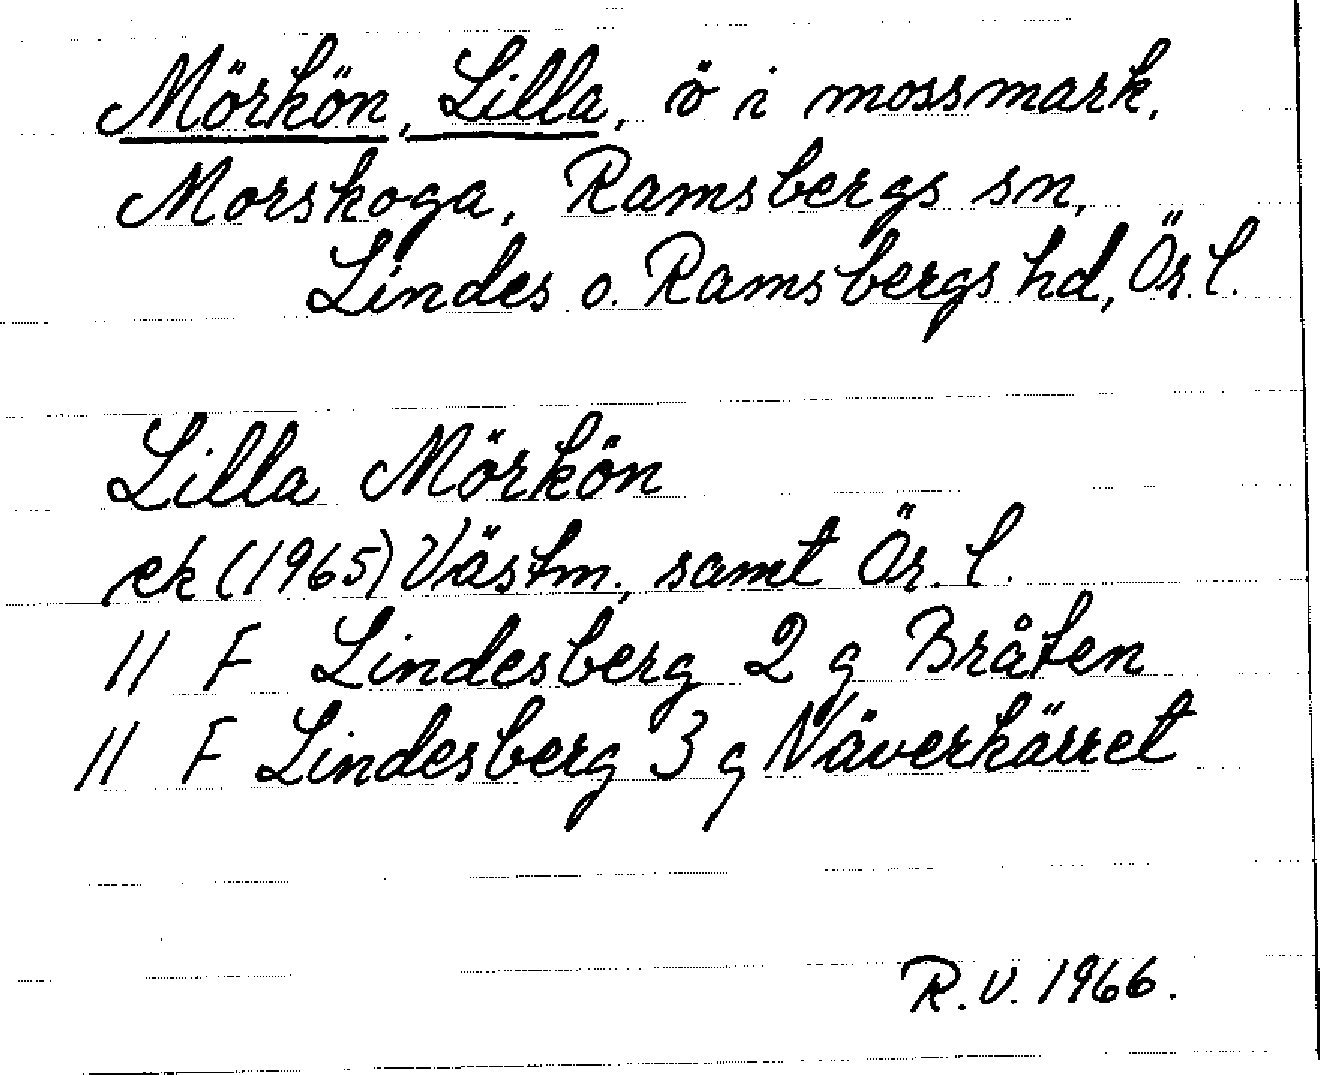 Mörkön, Lilla, ö i mossmark.
Morskoga, Ramsbergs sn,
Lindes o. Ramsbergs hd, Ör. l.
Lilla Mörkön
ek (1965) Västm. samt Ör. l.
11 F Lindesberg 2 g Bråten
11 F Lindesberg 3 g Näverkärret
R.V. 1966.